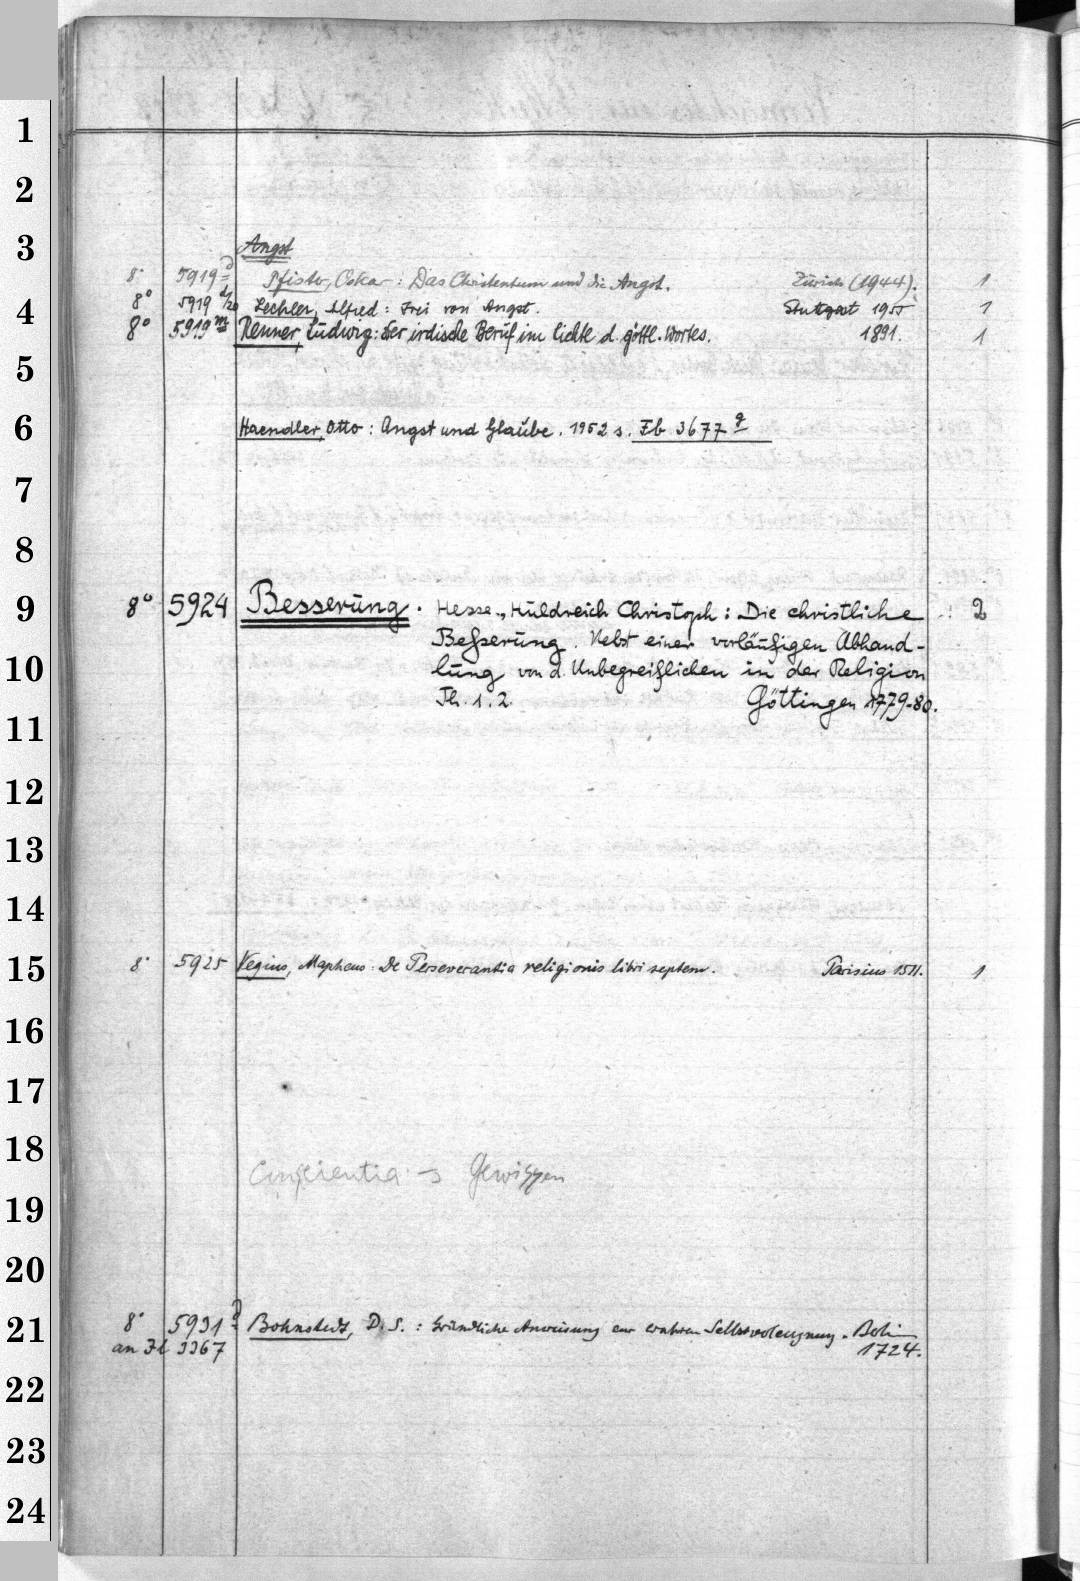 1
2
3
Angst
8° 5919 a Pfister, Oskar: Das Christentum und die Angst. Zürich (1944). 1
4
8° 5919 d/20 Lechler, Alfred: Frei von Angst. Stuttgart 1955 1
8° 5919 m Renner, Ludwig: Der irdische Beruf im Lichte d. göttl. Wortes. 1891. 1
5
6
Haendler, Otto: Angst und Glaube. 1952 s. Eb 3677 g
7
8
9
8° 5924 Besserung. Hesse, Huldreich Christoph: Die christliche 2
Beßerung. Nebst einer vorläufigen Abhand-
10
lung von d. Unbegreiflichen in der Religion
Th. 1. 2. Göttingen 1779-80.
11
12
13
14
15
8° 5925 Vegius, Mapheus: De Perseverantia religionis libri septem. Parisius 1511. 1
16
17
18
Conscientia → Gewissen
19
20
21
8° 5931 a Bohnstedt, D. S.: Gründliche Anweisung zur wahren Selbstverleugnung. Berlin
an 3367 1724.
22
23
24